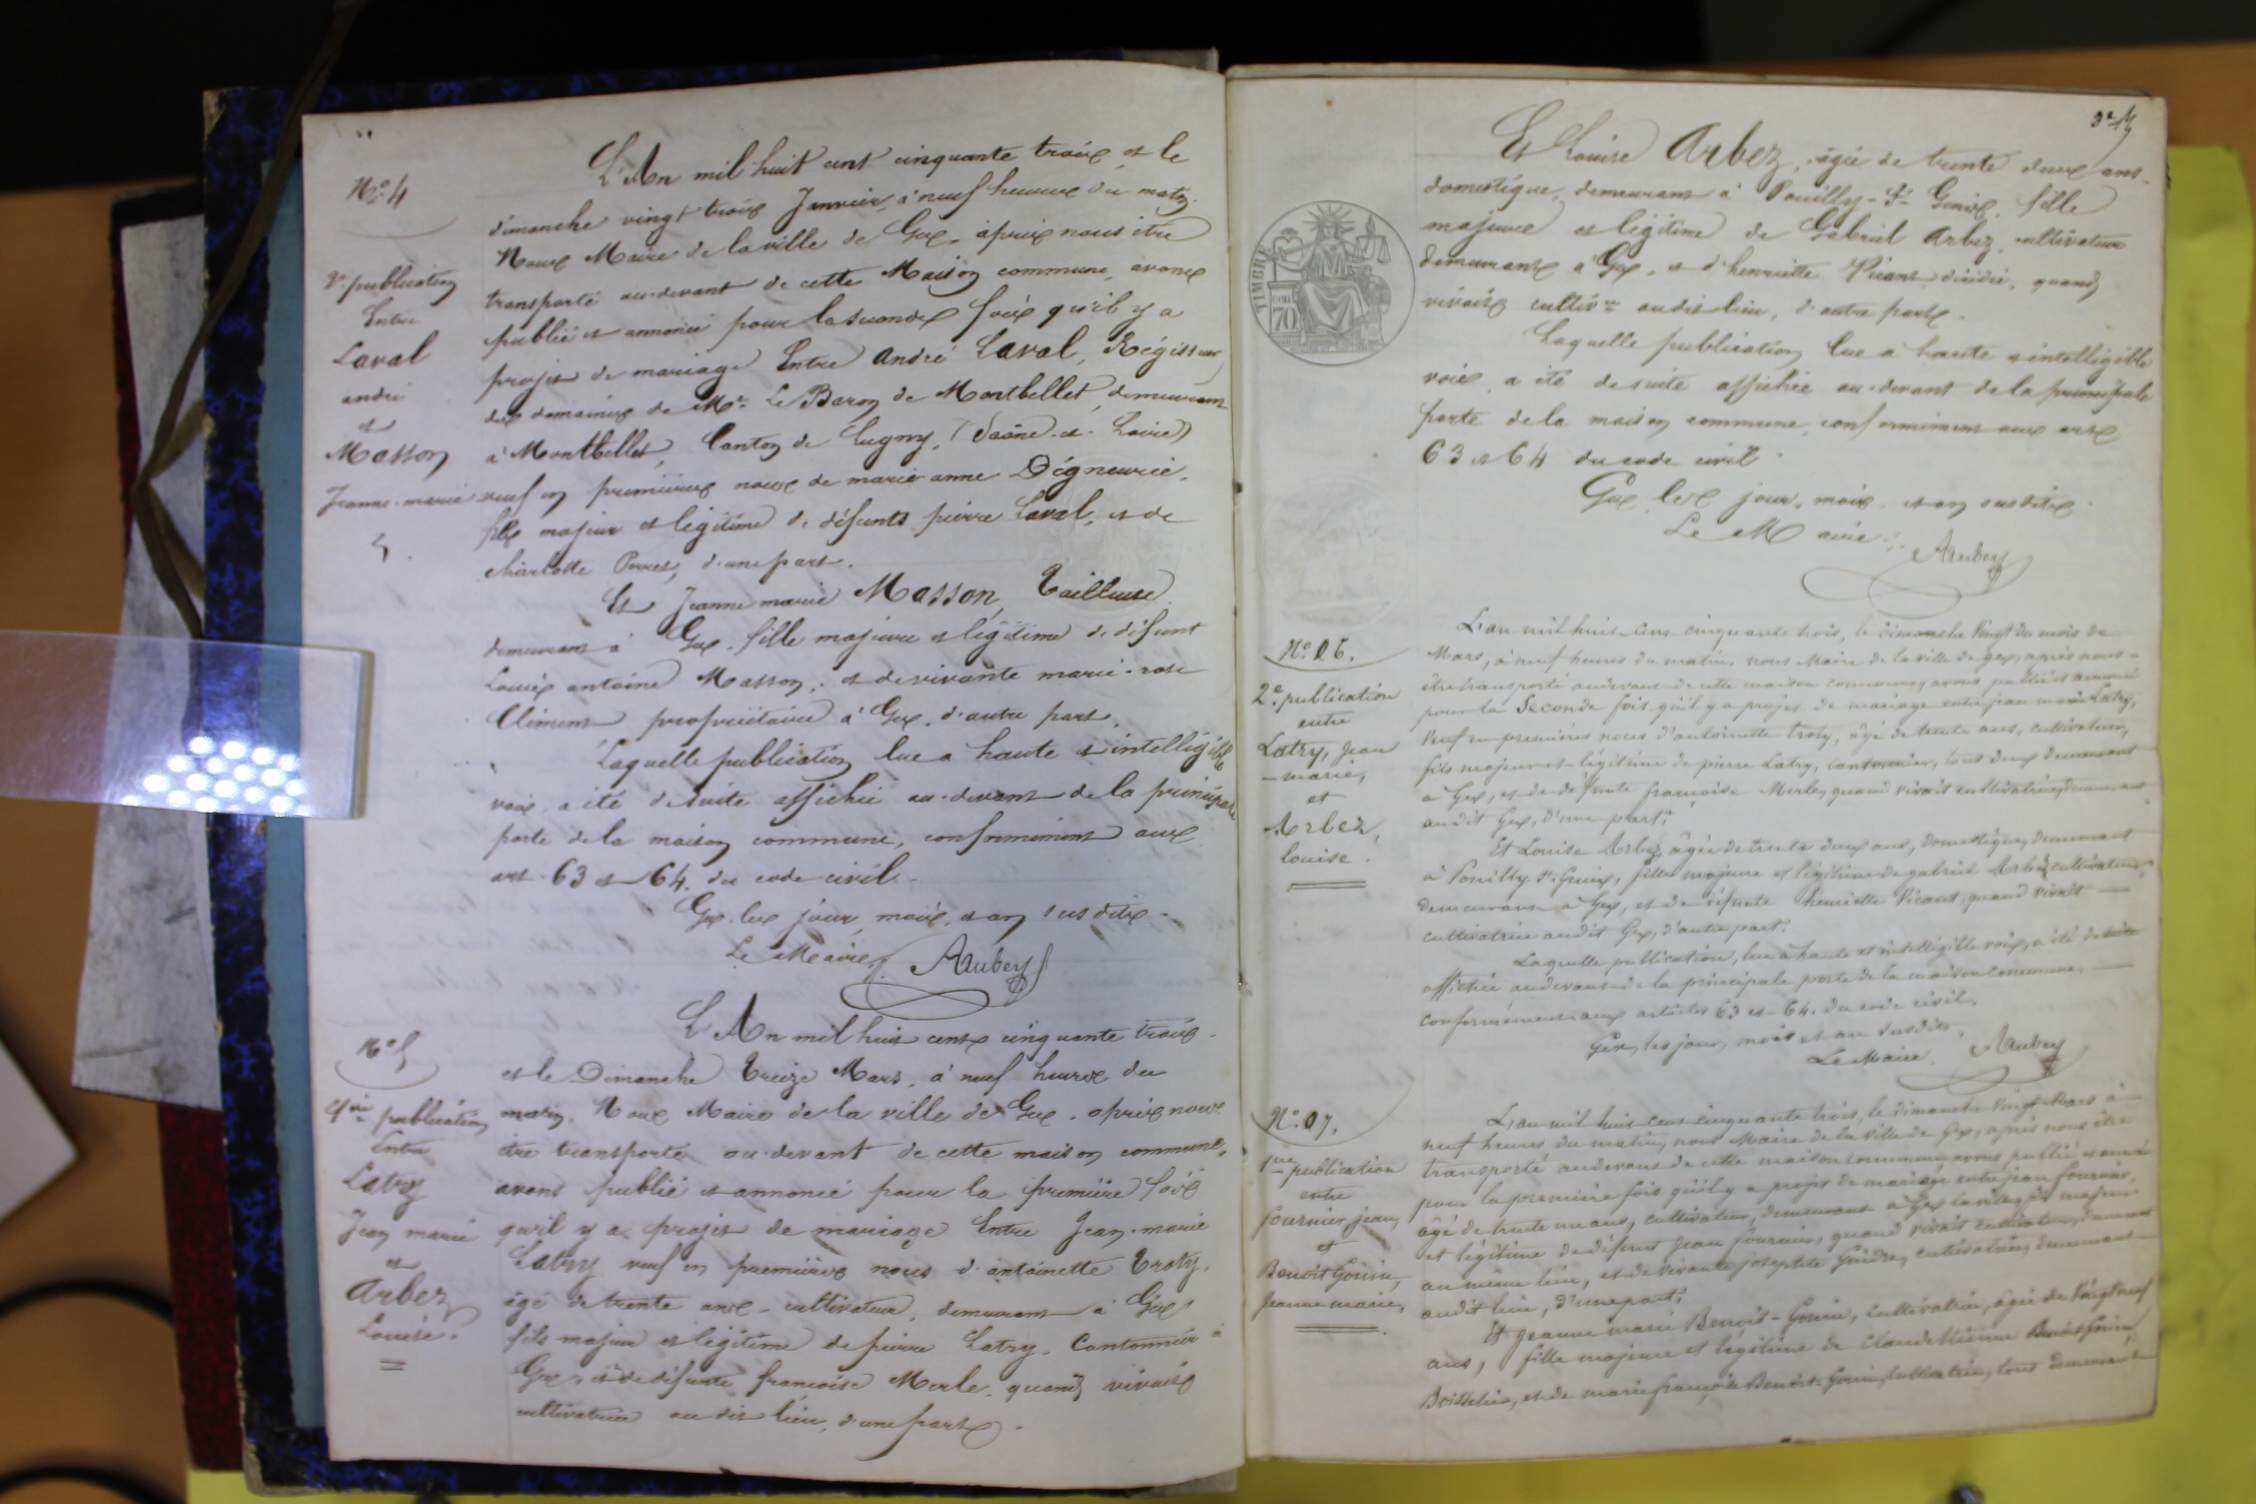 N.o 4
2e publication
Entre
Laval
andré
et
Masson
Jeanne-marie
L'An mil huit cent cinquante trois et le
dimanche vingt trois Janvier, à neuf heures du matin.
Nous Maire de la ville de Gex, après nous être
transporté au-devant de cette Maison commune, avons
publié et annoncé pour la seconde fois qu'il y a
projet de mariage Entre André Laval, Régisseur
des domaines de Mr. Le Baron de Montbellet, demeurant
à Montbellet, Canton de Lugny, (Saône-et-Loire)
veuf en premières noces de marie anne
fils majeur et légitime de défunts pierre Laval, et de
charlotte d'une part.
Et Jeanne marie Masson, Tailleuse
demeurant à Gex, fille majeure et légitime de défunt
Louis antoine Masson, et de vivante marie-rose
Clément propriétaire à Gex, d'autre part.
Laquelle publication lue a haute et intelligible
voix, a été de suite affichée au-devant de la principale
porte de la maison commune, conformément aux
art. 63 et 64 du code civil.
Gex les jour, mois, et an susdits.
Le Maire, Aubery
N.o 5
1ère publication
Entre
Latry
Jean marie
et
Arbez
Louise.
L'An mil huit cent cinquante trois
et le Dimanche Treize Mars, à neuf heures du
matin, Nous Maire de la ville de Gex, après nous
être transporté au-devant de cette maison commune,
avons publié et annoncé pour la première fois
qu'il y a projet de mariage Entre Jean-marie
Latry veuf en premières noces d'antoinette Troty,
âgé de trente ans, cultivateur, demeurant à Gex,
fils majeur et légitime de pierre Latry, Cantonnier à
Gex, et de défunte françoise Merle, quand vivait
cultivatrice au dit lieu, d'une part.
TIMBRE
70
Et Louise Arbez, âgée de trente deux ans
domestique, demeurant à Pouilly-St Genix, fille
majeure et légitime de Gabriel Arbez, cultivateur
demeurant à Gex, et d'henriette Vicant décédée, quand
vivait cultivce audit lieu, d'autre part.
Laquelle publication lue à haute et intelligible
voix, a été de suite affichée au-devant de la principale
porte de la maison commune, conformément aux art.
63 et 64 du code civil.
Gex les jour, mois, et an susdits.
Le Maire Aubery
N.o 06.
2e publication
entre
Latry, Jean
-marie,
et
Arbez,
louise.
L'an mil huit cent cinquante trois, le dimanche vingt du mois de
Mars, à neuf heures du matin, nous Maire de la ville de Gex, après nous
être transporté au devant de cette maison commune, avons publié et annoncé
pour la Seconde fois qu'il y a projet de mariage entre jean marie Latry,
Veuf en premières noces d'antoinette Troty, âgé de trente ans, cultivateur,
fils majeur et légitime de pierre Latry, cantonnier, tous deux demeurant
à Gex, et de défunte françoise Merle, quand vivait cultivatrice, demeurant
audit Gex, d'une part;
Et Louise Arbez, âgée de trente deux ans, domestique, demeurant
à Pouilly St Genix, fille majeure et légitime de gabriel Arbez, cultivateur,
demeurant à Gex, et de défunte henriette Vicant, quand vivait
cultivatrice audit Gex, d'autre part;
Laquelle publication, lue à haute et intelligible voix, a été de suite
affichée au devant de la principale porte de la maison commune,
conformément aux articles 63 et 64 du code civil.
Gex, les jour, mois et an susdits.
Le Maire. Aubery
N.o 07.
1re publication
entre
fournier, jean,
et
Benoit Gonin,
Jeanne marie,
L'an mil huit cent cinquante trois, le dimanche Vingt Mars à
neuf heures du matin, nous Maire de la Ville de Gex, après nous être
transporté au devant de cette maison commune avons publié et annoncé
pour la première fois qu'il y a projet de mariage entre jean fournier,
âgé de trente un ans, cultivateur, demeurant à Gex majeur
et légitime de défunt Jean fournier, quand vivait cultivateur, demeurant
au même lieu, et de vivante josephte cultivatrice, demeurant
audit lieu, d'une part;
Et Jeanne marie Benoit-Gonin, Cultivatrice, âgée de Vingt neuf
ans, fille majeure et légitime de Claude Etienne Benoit Gonin,
Boisselier, et de marie françoise Benoit-Gonin, cultivatrice, tous demeurant